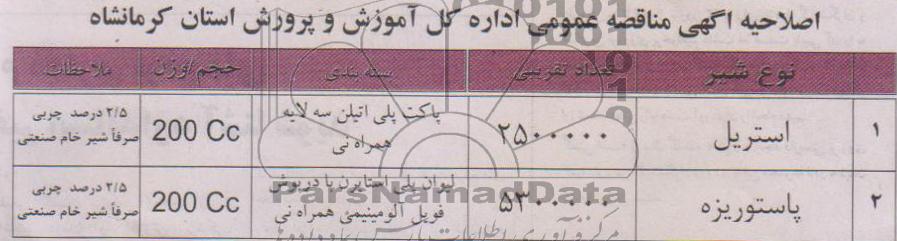 اصلاحیه اگهی مناقصه عمومی اداره کل آموزش و پرورش استان کرمانشاه
نوع شیر تعداد تقریبی بسته بندی حجم/وزن ملاحظات
۱ استریل ۲۵۰۰۰۰۰ پاکت پلی اتیلن سه لایه همراه نی 200 Cc ۲/۵ درصد چربی صرفاً شیر خام صنعتی
۲ پاستوریزه ۵۳۰۰۰۰۰ لیوان پلی استایرن با درپوش فویل آلومینیمی همراه نی 200 Cc ۲/۵ درصد چربی صرفاً شیر خام صنعتی
ParsNamadData